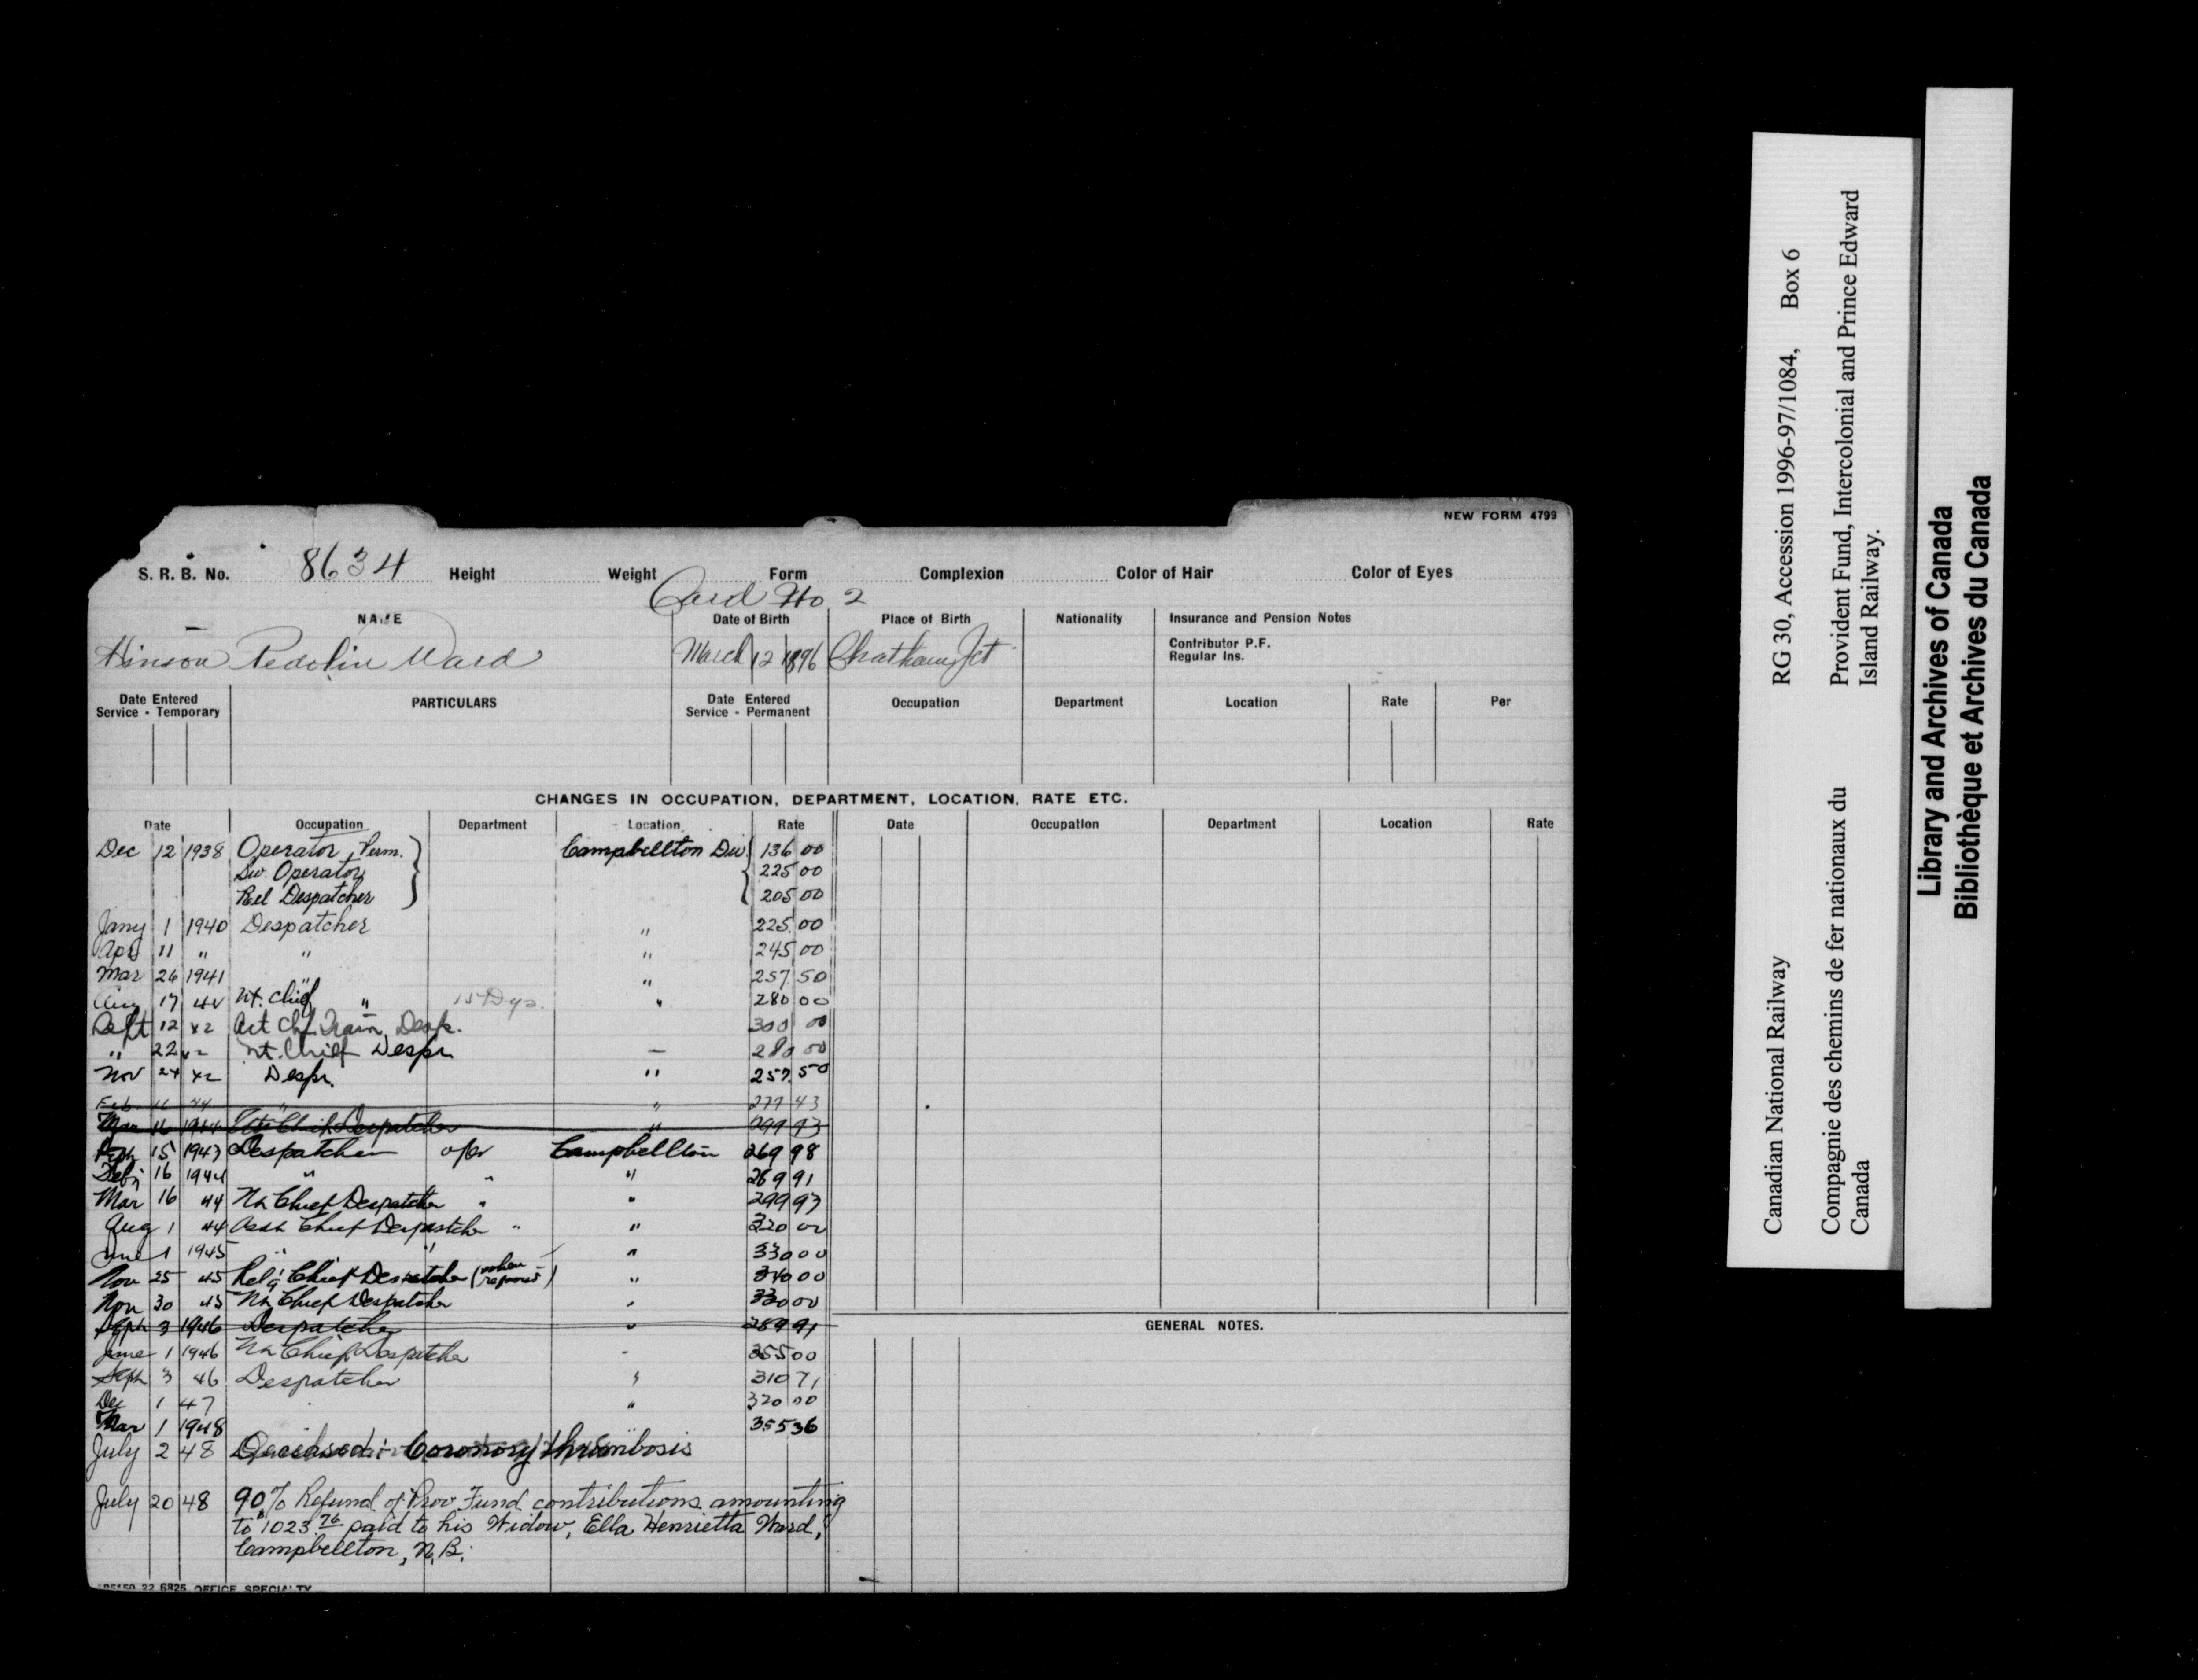 NEW FORM 4799
S. R. B. No. 8634 Height Weight Form Complexion Color of Hair Color of Eyes
Card No 2
NAME Date of Birth Place of Birth Nationality Insurance and Pension Notes
Contributor P.F.
Regular Ins.
Hinson Ward March 12 1896 Chatham Jct
Date Entered Service - Temporary PARTICULARS Date Entered Service - Permanent Occupation Department Location Rate Per
CHANGES IN OCCUPATION, DEPARTMENT, LOCATION, RATE ETC.
Date Occupation Department Location Rate Date Occupation Department Location Rate
Dec 12 1938 Operator, Perm. Campbellton Div. 136 00
Div. Operator 225 00
Rel Despatcher 205 00
Jany 1 1940 Despatcher " 225 00
Apr 11 " " " 245 00
Mar 26 1941 " " 257 50
Aug 17 42 Nt. Chief " 15 Dys. " 280 00
Sept 12 42 Act Chf. Train Desp. 300 00
" 22 42 Nt. Chief Despr. — 280 00
Nov 24 42 Despr. " 257 50
Feb 16 44 " " 277 43
Mar 16 1944 Nt Chief Despatcher " 299 93
Sept 15 1943 Despatcher Campbellton 269 98
Feby 16 1944 " " " 289 91
Mar 16 44 Nt Chief Despatcher " " 299 93
Aug 1 44 Asst Chief Despatcher " " 320 00
June 1 1945 " " " 330 00
Nov 25 45 Relg Chief Despatcher (when required) " 340 00
Nov 30 45 Nt Chief Despatcher " 330 00
Sept 3 1946 Despatcher " 289 91
June 1 1946 Nt Chief Despatcher " 355 00
Sept 3 46 Despatcher " 310 71
Dec 1 47 " 320 00
Mar 1 1948 355 36
July 2 48 Deceased: Coronory thrombosis
July 20 48 90% Refund of Prov. Fund contributions amounting
to $1023.76 paid to his Widow, Ella Henrietta Ward,
Campbellton, N.B.
GENERAL NOTES.
OFFICE SPECIALTY
Canadian National Railway RG 30, Accession 1996-97/1084, Box 6
Compagnie des chemins de fer nationaux du Canada
Provident Fund, Intercolonial and Prince Edward Island Railway.
Library and Archives of Canada
Bibliothèque et Archives du Canada